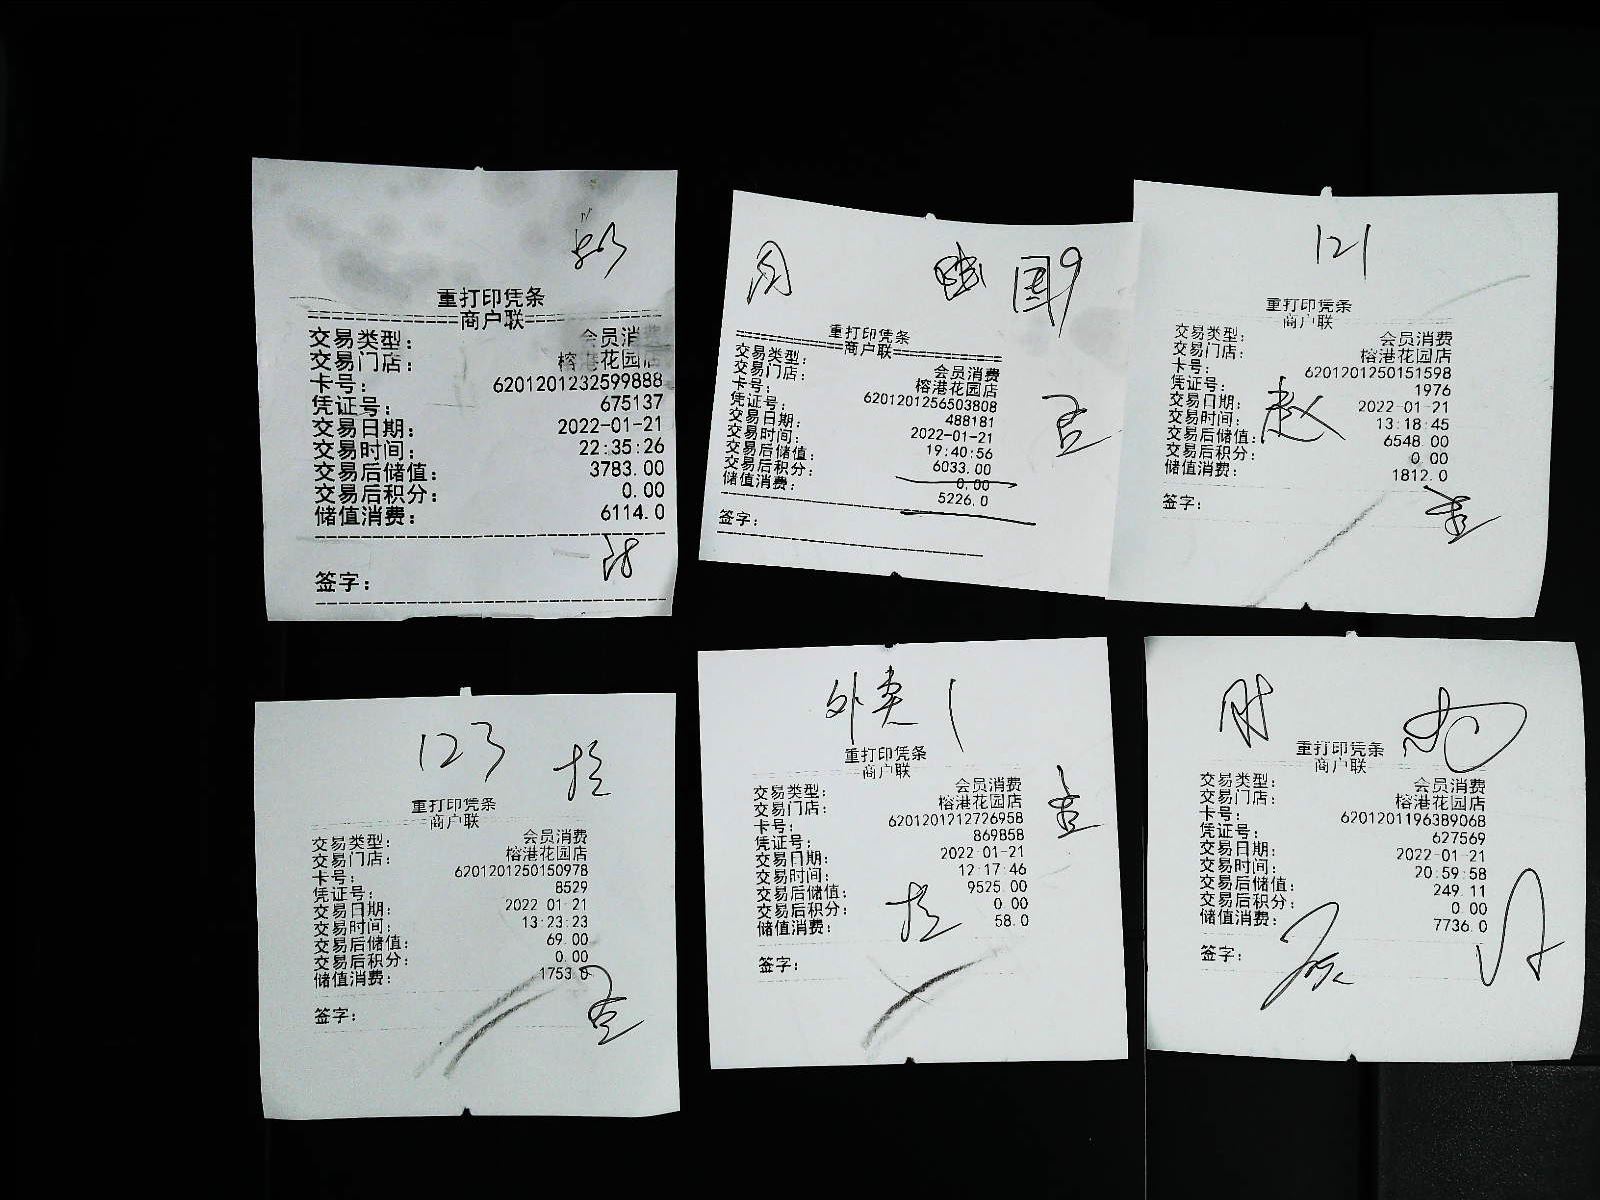 重打印凭条
商户联
交易类型： 会员消费
交易门店： 榕港花园店
卡号： 6201201232599888
凭证号： 675137
交易日期： 2022-01-21
交易时间： 22:35:26
交易后储值： 3783.00
交易后积分： 0.00
储值消费： 6114.0
签字：
重打印凭条
商户联
交易类型： 会员消费
交易门店： 榕港花园店
卡号： 6201201256503808
凭证号： 488181
交易日期： 2022-01-21
交易时间： 19:40:56
交易后储值： 6033.00
交易后积分： 0.00
储值消费： 5226.0
签字：
121
重打印凭条
商户联
交易类型： 会员消费
交易门店： 榕港花园店
卡号： 6201201250151598
凭证号： 1976
交易日期： 2022-01-21
交易时间： 13:18:45
交易后储值： 6548.00
交易后积分： 0.00
储值消费： 1812.0
赵
签字：
123
重打印凭条
商户联
交易类型： 会员消费
交易门店： 榕港花园店
卡号： 6201201250150978
凭证号： 8529
交易日期： 2022-01-21
交易时间： 13:23:23
交易后储值： 69.00
交易后积分： 0.00
储值消费： 1753.0
签字：
外卖1
重打印凭条
商户联
交易类型： 会员消费
交易门店： 榕港花园店
卡号： 6201201212726958
凭证号： 869858
交易日期： 2022-01-21
交易时间： 12:17:46
交易后储值： 9525.00
交易后积分： 0.00
储值消费： 58.0
签字：
重打印凭条
商户联
交易类型： 会员消费
交易门店： 榕港花园店
卡号： 6201201196389068
凭证号： 627569
交易日期： 2022-01-21
交易时间： 20:59:58
交易后储值： 249.11
交易后积分： 0.00
储值消费： 7736.0
签字：